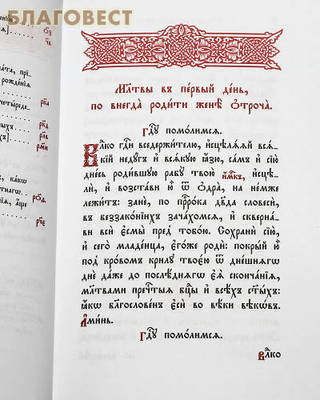 БЛАГОВЕСТ
Мл҃твы въ пе́рвый де́нь,
по внегда̀ роди́ти женѣ̀ ѻ҆троча̀.
Гдⷭ҇ꙋ помо́лимсѧ.
Влⷣко гдⷭ҇и вседержи́телю, и҆сцѣлѧ́ѧй всѧ́-
кїй недꙋ́гъ и҆ всѧ́кꙋю ꙗ҆́зю, са́мъ и҆ сїю̀
дне́сь роди́вшꙋю рабꙋ̀ твою̀ и҆́мⷬ҇къ, и҆сцѣ-
лѝ, и҆ возста́ви ю҆̀ ѿ ѻ҆дра̀, на не́мже
лежи́тъ: занѐ, по прⷪ҇ро́ка дв҃да словесѝ,
въ беззако́нїихъ зача́хомсѧ, и҆ скве́рна-
ви всѝ є҆смы̀ пред̾ тобо́ю. Сохранѝ сїю̀,
и҆ сего̀ младе́нца, є҆го́же родѝ: покры́й ю҆̀
под̾ кро́вомъ крилꙋ̀ твоє́ю ѿ дне́шнѧгѡ
днѐ да́же до послѣ́днѧгѡ є҆ѧ̀ сконча́нїѧ,
мл҃твами пречⷭ҇тыѧ бцⷣы и҆ всѣ́хъ ст҃ы́хъ:
ꙗ҆́кѡ бл҃гослове́нъ є҆сѝ во вѣ́ки вѣкѡ́въ.
А҆ми́нь.
Гдⷭ҇ꙋ помо́лимсѧ.
влⷣко